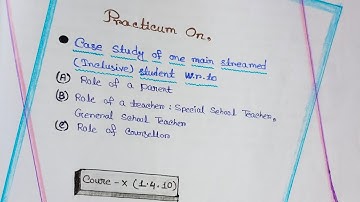 Practicum On.
Case study of one main streamed
(Inclusive) student w.r.to
(A) Role of a parent
(B) Role of a teacher : Special School Teacher,
General School Teacher
(C) Role of Councellor
Course - X (1.4.10)